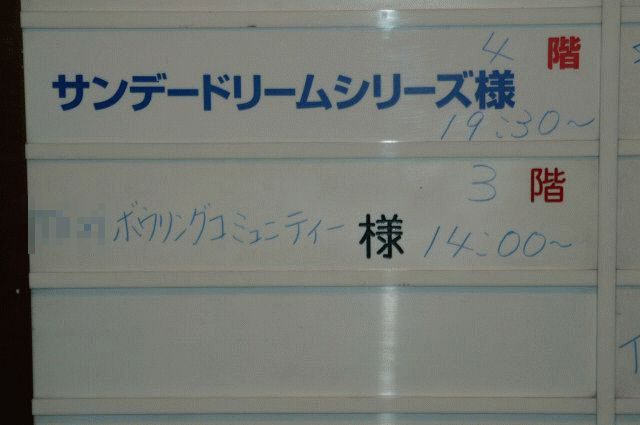 4 階
サンデードリームシリーズ様
19:30～
3 階
ボウリングコミュニティー 様 14:00～